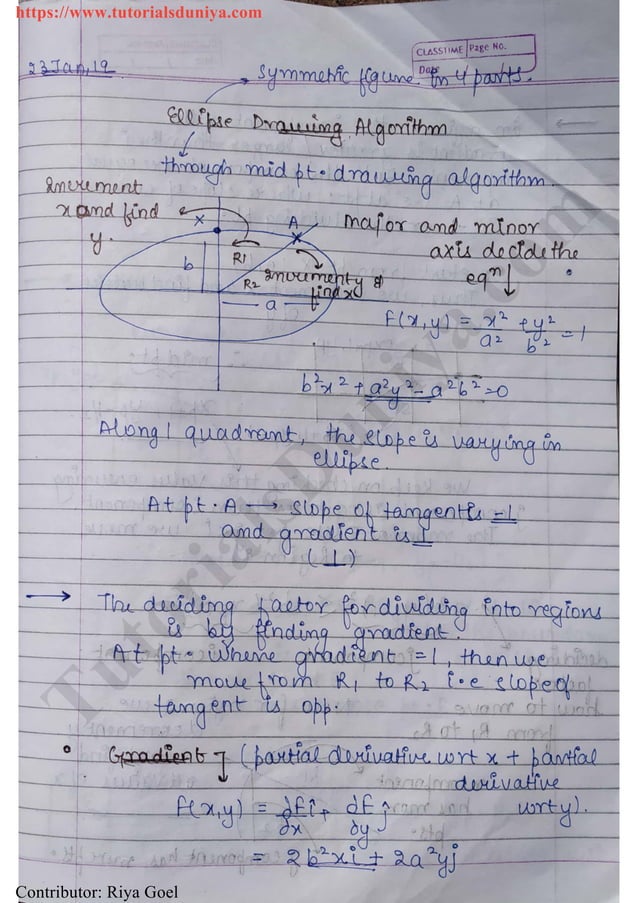 https://www.tutorialsduniya.com
CLASSTIME Page No.
Date
23 Jan, 19
Symmetric figure in 4 parts.
Ellipse Drawing Algorithm
through mid pt. drawing algorithm.
Increment
x and find
y.
x
A
Major and minor
axis decide the
eqⁿ
R1
b
R2
Increment y &
find x
a
f(x,y) = x²/a² + y²/b² = 1
b²x² + a²y² - a²b² = 0
Along 1 quadrant, the slope is varying in
ellipse.
At pt. A → slope of tangent is -1
and gradient is 1
(⊥)
→ The deciding factor for dividing into regions
is by finding gradient.
At pt. where gradient = 1, then we
move from R1 to R2 i.e slope of
tangent is opp.
• Gradient ↴ (partial derivative wrt x + partial
derivative
wrt y).
f(x,y) = ∂f/∂x î + ∂f/∂y ĵ
= 2b²xi + 2a²yj
TutorialsDuniya.com
Contributor: Riya Goel